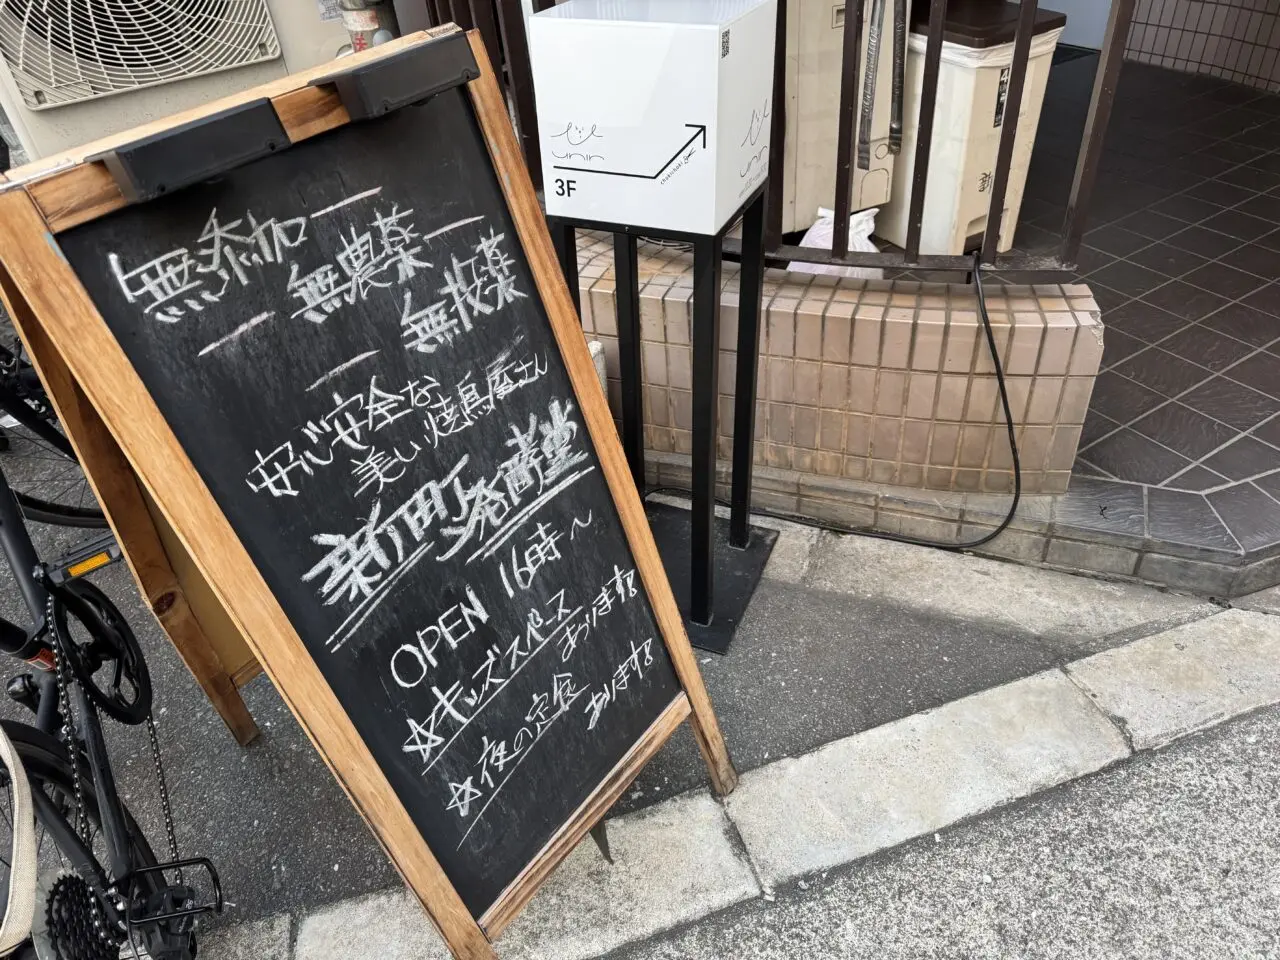 無添加
無農薬
無投薬
安心安全な
美い焼鳥屋さん
新町発酵堂
OPEN 16時〜
☆キッズスペース
あります!!
☆夜の定食
あります!!
3F